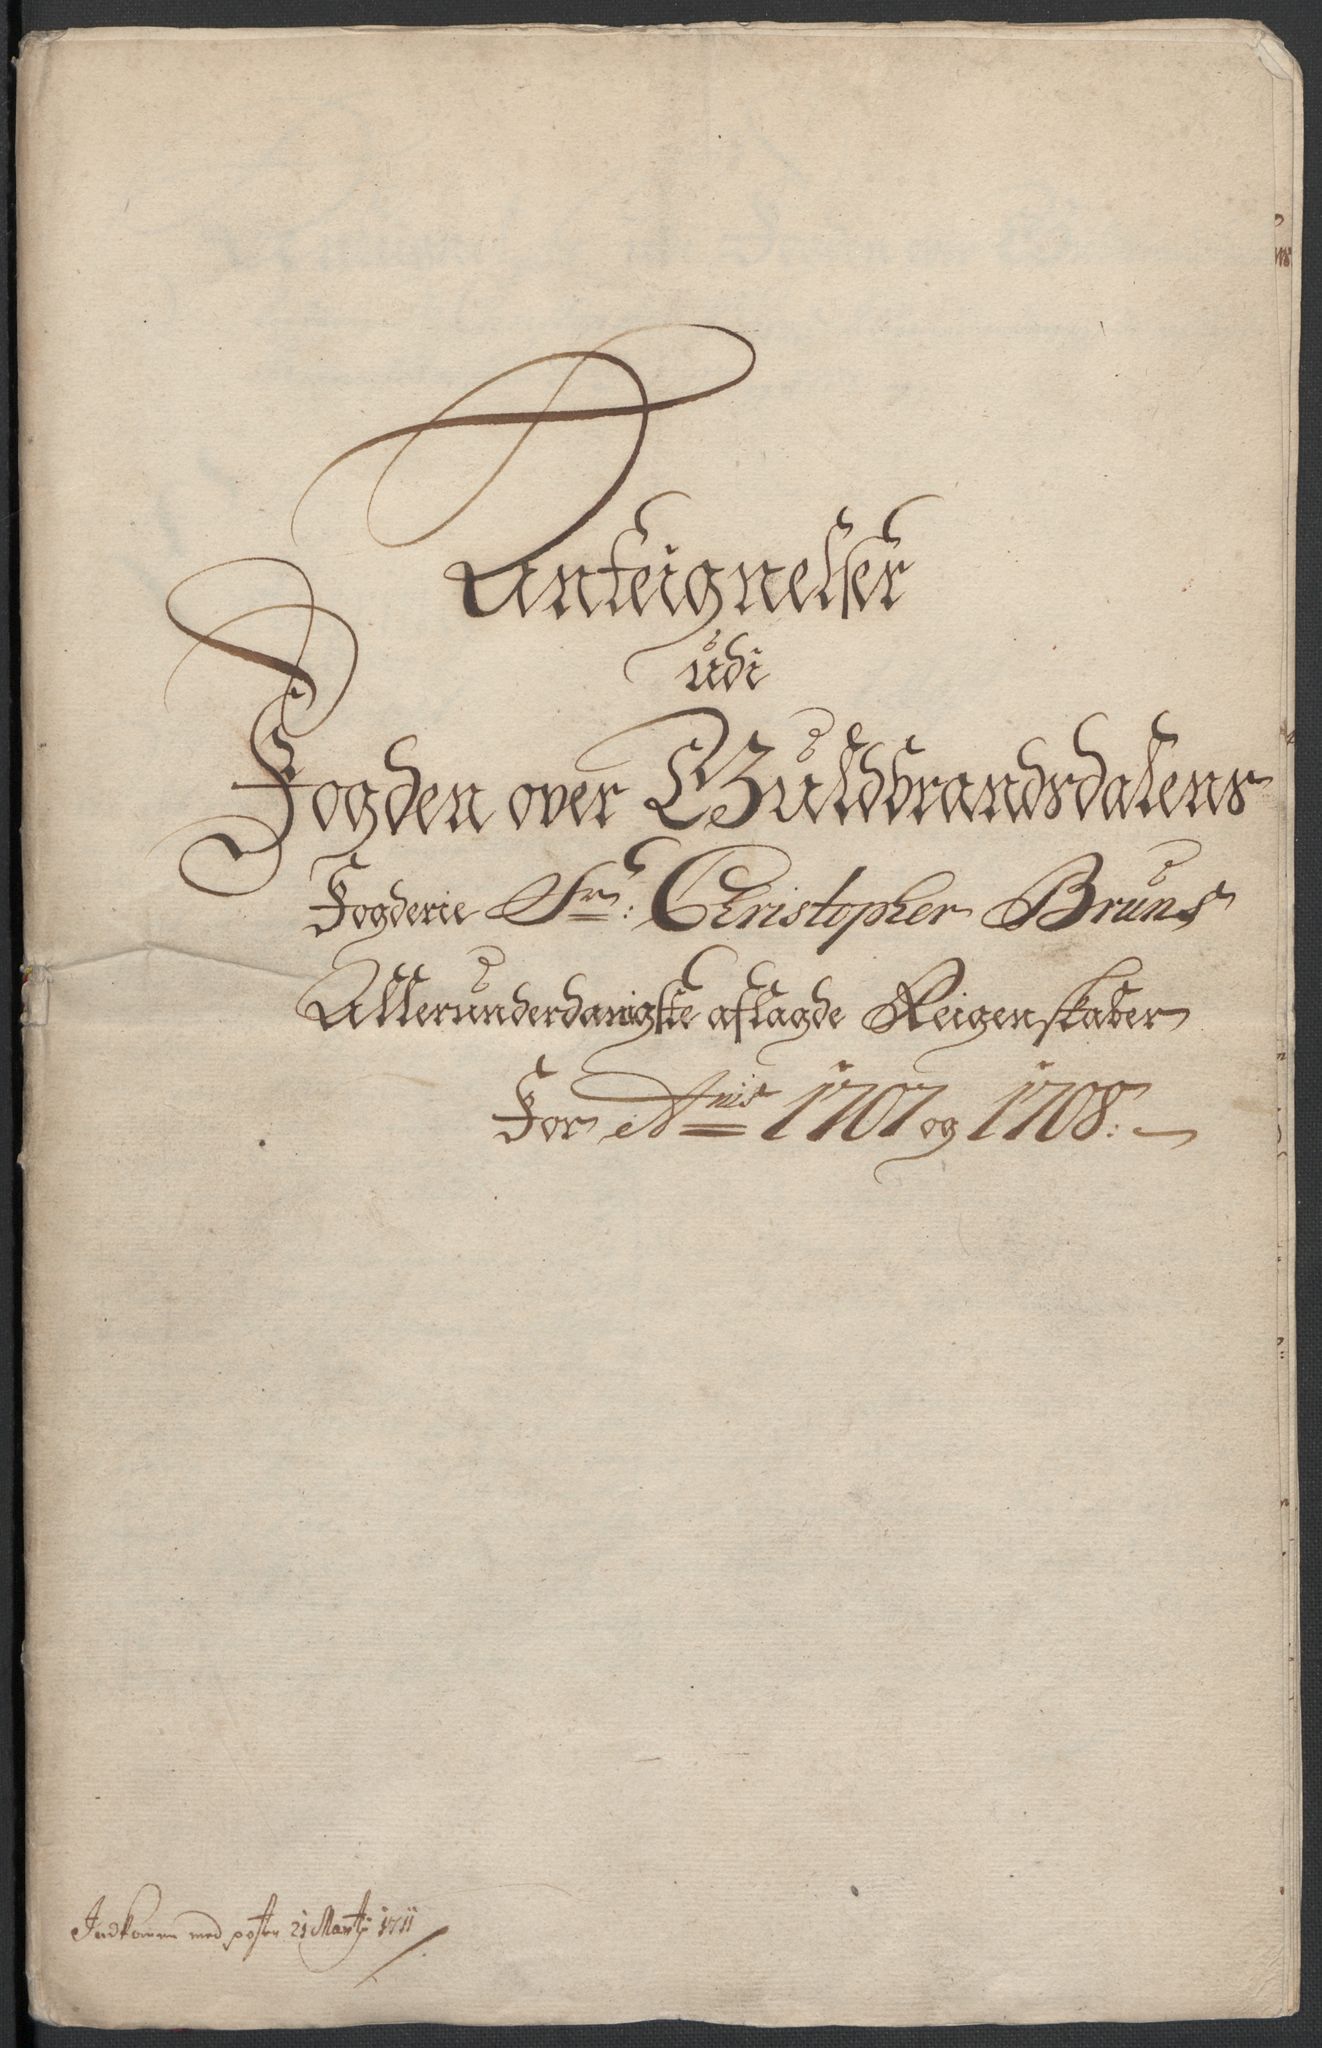 Anteignelser
udi
Fogden over Guldbrandsdalens
Fogderie Sr: Christopher Bruns
Allerunderdanigste aflagde Reigenskaber
For Anis 1707 og 1708:
Indkomm med posten 21 Martij 1711